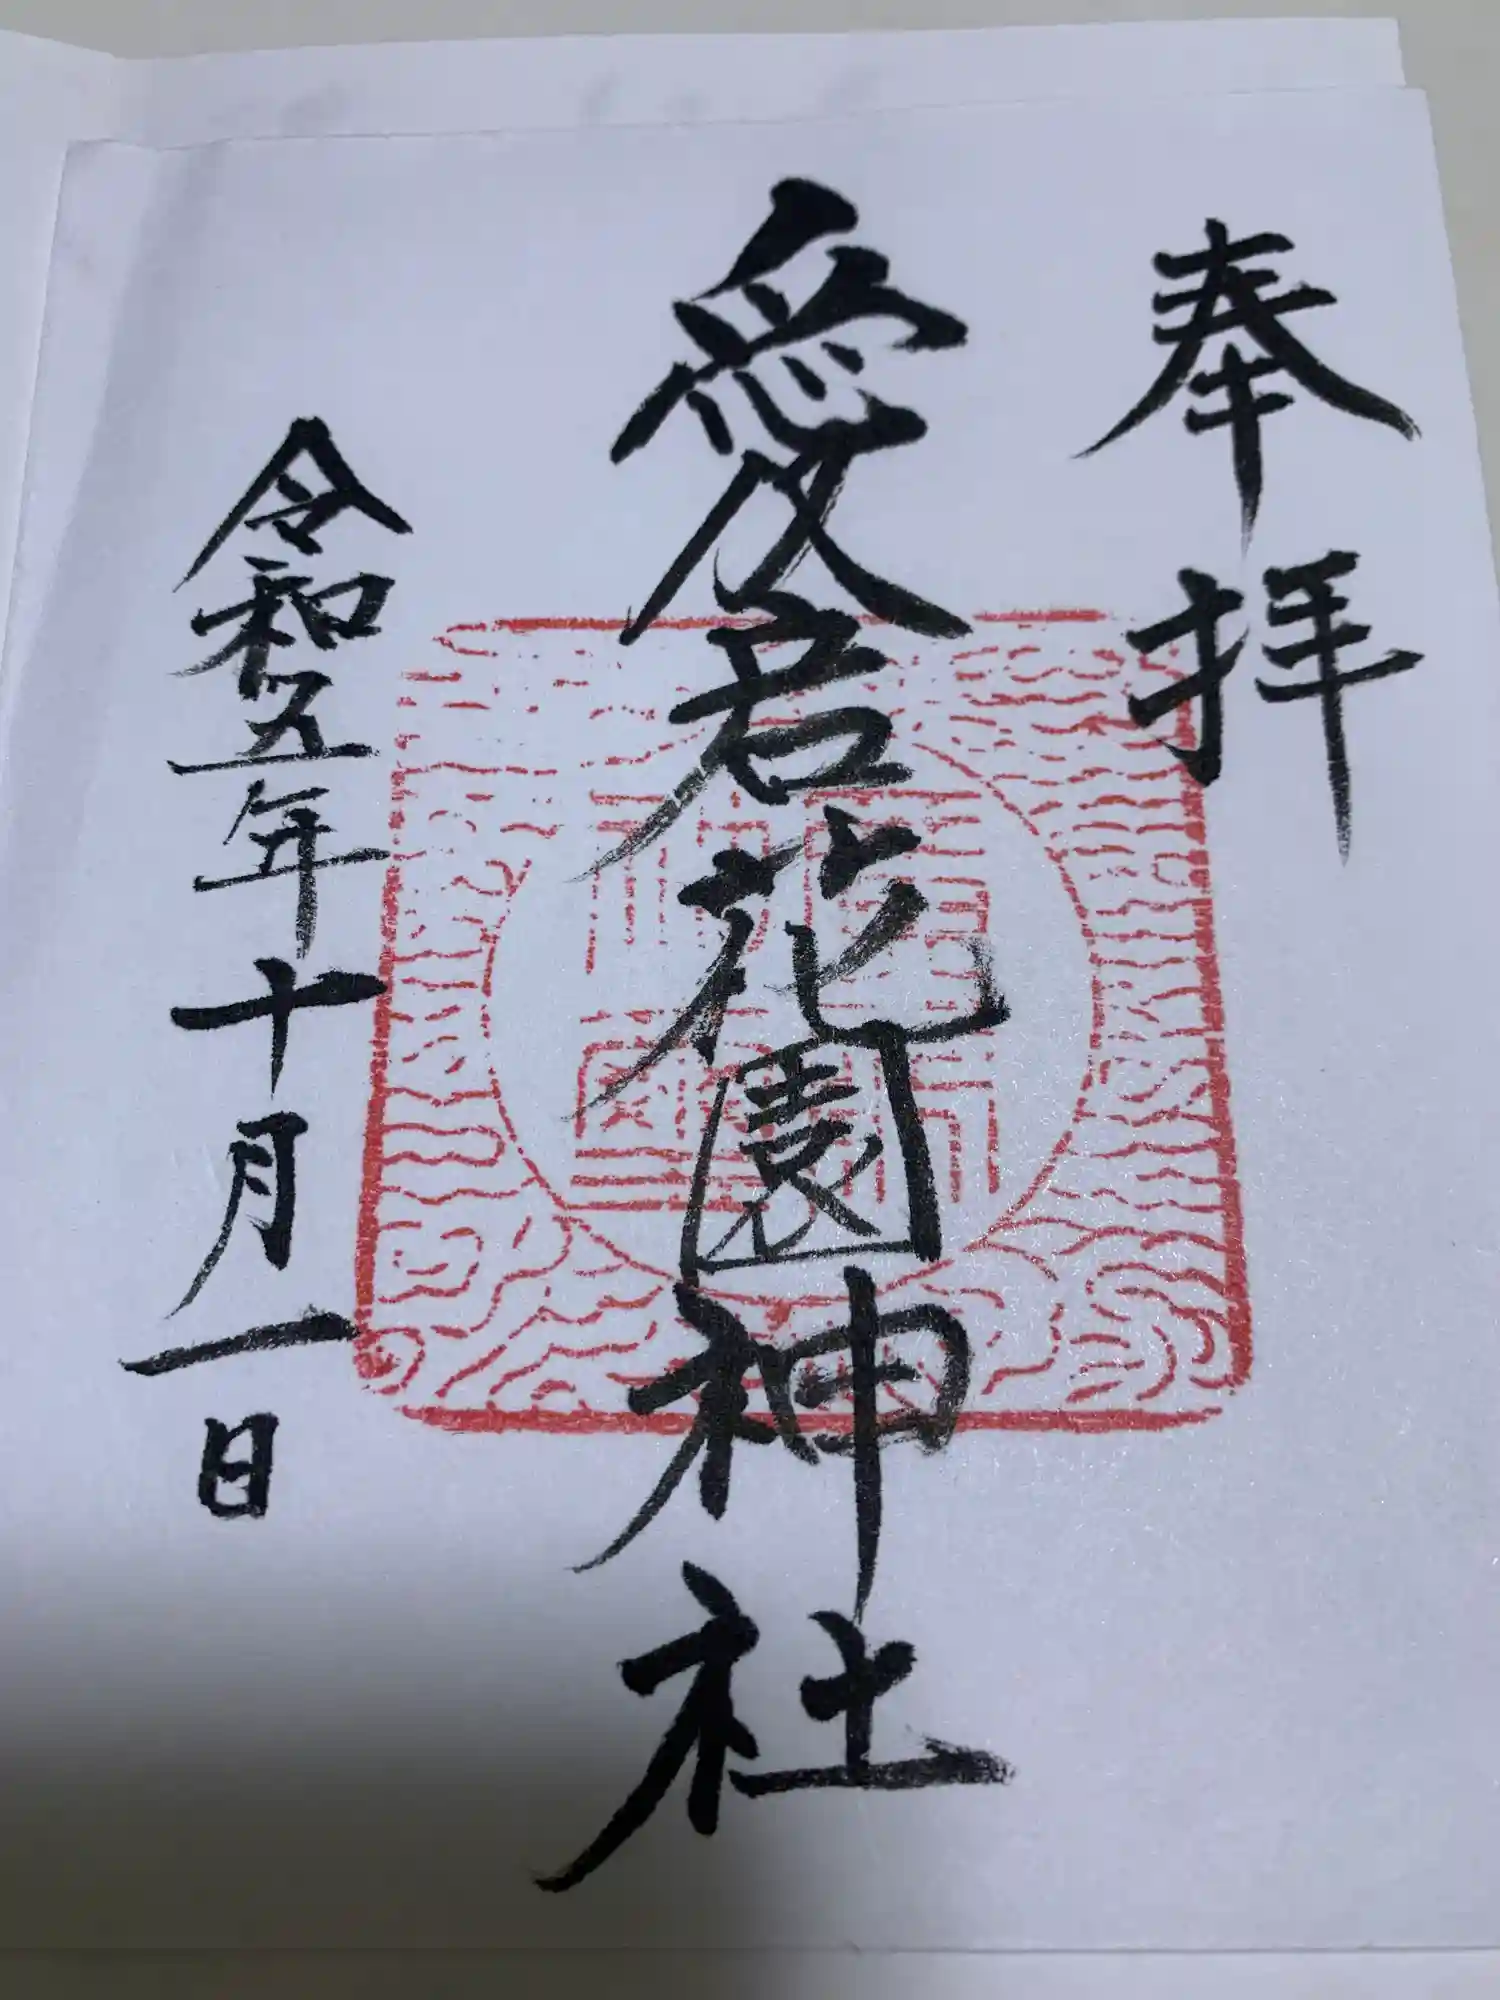 奉拝
愛宕花園神社
令和五年十月一日